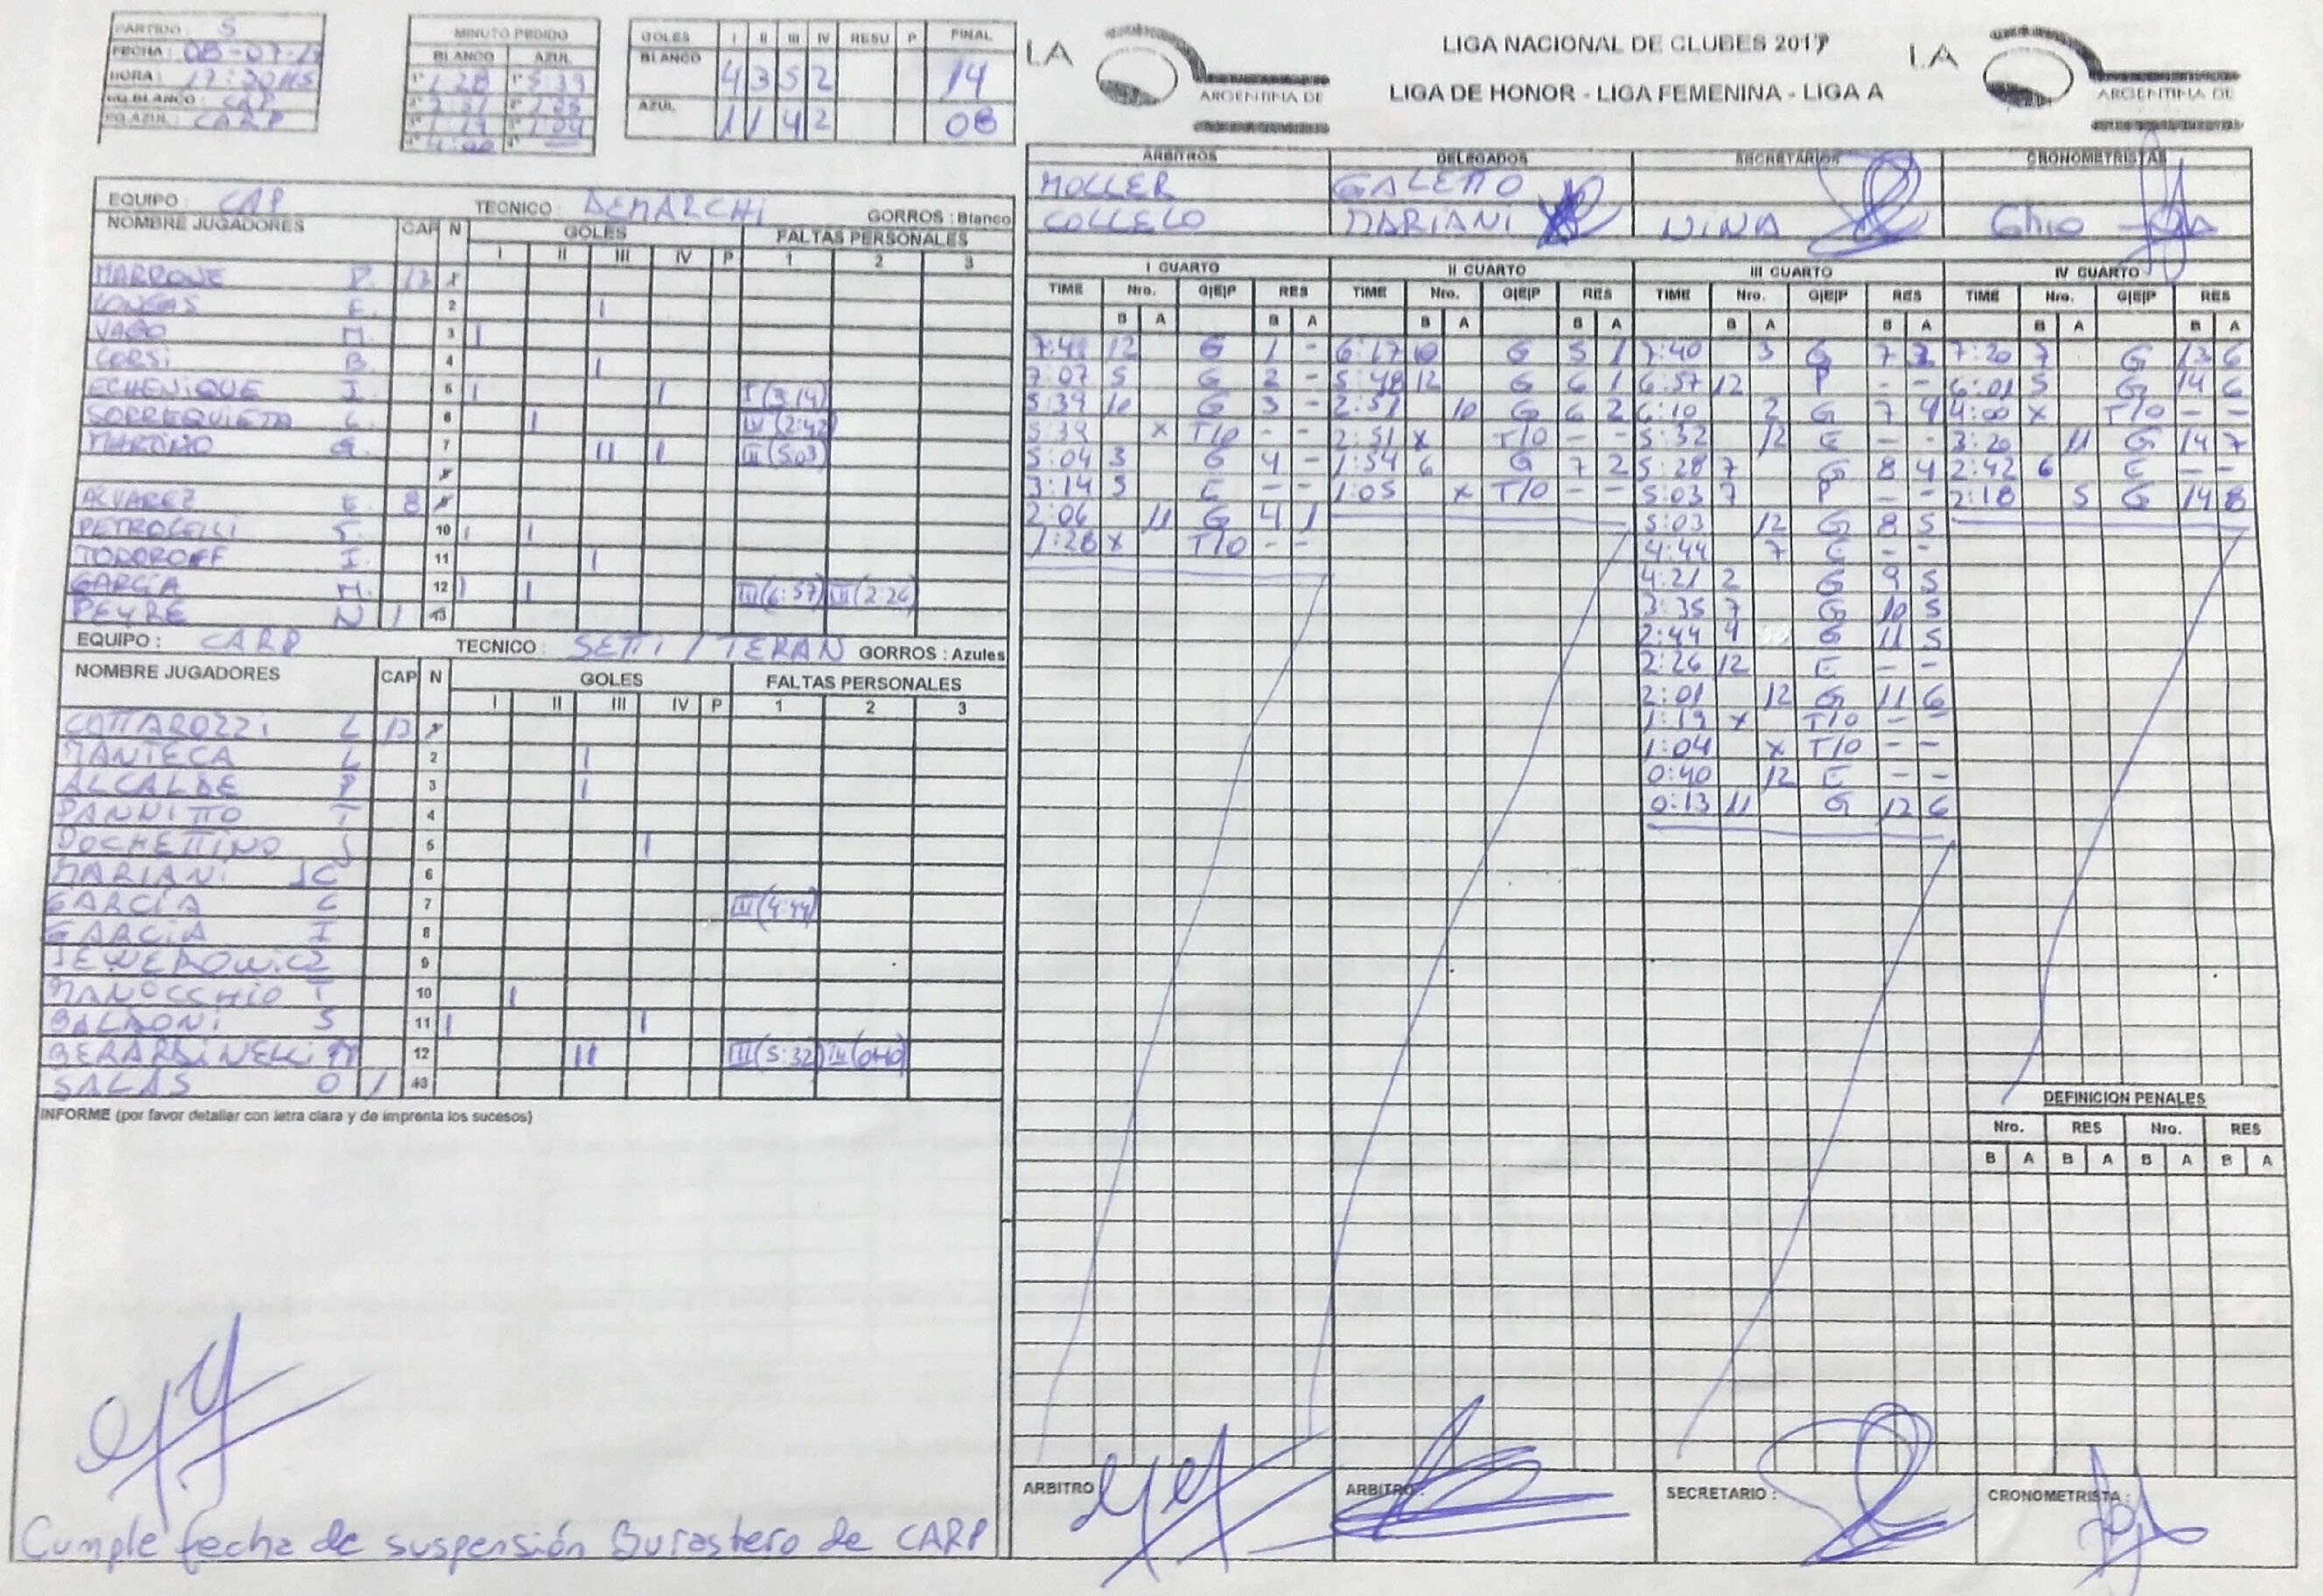 PARTIDO : 5
FECHA : 08-07-17
HORA : 17:30HS
EQ.BLANCO : CAP
EQ.AZUL : CARP
MINUTO PEDIDO
BLANCO AZUL
1° 1:28 1° 5:39
2° 2:51 2° 1:05
3° 1:19 3° 1:04
4° 4:00 4° —
GOLES I II III IV RESU P FINAL
BLANCO 4 3 5 2 14
AZUL 1 1 4 2 08
LA
ARGENTINA DE
LIGA NACIONAL DE CLUBES 2017
LIGA DE HONOR - LIGA FEMENINA - LIGA A
LA
ARGENTINA DE
ARBITROS DELEGADOS SECRETARIOS CRONOMETRISTAS
MOLLER GALETTO
COLLELO MARIANI NINA Ghio
EQUIPO : CAP TECNICO : DEMARCHI GORROS : Blanco
NOMBRE JUGADORES CAP N GOLES FALTAS PERSONALES
I II III IV P 1 2 3
MARRONE P. 13 1
LONGAS E. 2 I
VAGO M. 3 I
CORSI B. 4 I
ECHENIQUE I. 5 I I I (3:14)
SORREQUIETA L. 6 I IV (2:42)
MARTINO G. 7 II I III (5:03)
8
ALVAREZ E. 8 9
PETROCELLI F. 10 I I
TODOROFF I. 11 I
GARCIA M. 12 I I III (6:57) III (2:26)
PEYRE N 1 13
EQUIPO : CARP TECNICO : SETTI / TERAN GORROS : Azules
NOMBRE JUGADORES CAP N GOLES FALTAS PERSONALES
I II III IV P 1 2 3
COTTAROZZI L 13 1
MANTECA L 2 I
ALCALDE P 3 I
PANNITTO T 4
POCHETTINO J 5 I
MARIANI JC 6
GARCIA L 7 III (4:44)
GARCIA I 8
9
MANOCCHIO T 10 I
BALDONI S 11 I I
BERARDINELLI M 12 II III (5:32) III (0:40)
SALAS O 1 13
INFORME (por favor detallar con letra clara y de imprenta los sucesos)
Cumple fecha de suspensión Burastero de CARP
I CUARTO
TIME Nro. G|E|P RES
B A B A
7:41 12 G 1 -
7:07 5 G 2 -
5:39 10 G 3 -
5:39 X T/O - -
5:04 3 G 4 -
3:14 5 E - -
2:06 11 G 4 1
1:28 X T/O - -
II CUARTO
TIME Nro. G|E|P RES
B A B A
6:17 10 G 5 1
5:48 12 G 6 1
2:51 10 G 6 2
2:51 X T/O - -
1:54 6 G 7 2
1:05 X T/O - -
III CUARTO
TIME Nro. G|E|P RES
B A B A
7:40 3 G 7 3
6:57 12 P - -
6:10 2 G 7 4
5:32 12 E - -
5:28 7 G 8 4
5:03 7 P - -
5:03 12 G 8 5
4:44 7 E - -
4:21 2 G 9 5
3:35 7 G 10 5
2:44 4 G 11 5
2:26 12 E - -
2:01 12 G 11 6
1:19 X T/O - -
1:04 X T/O - -
0:40 12 E - -
0:13 11 G 12 6
IV CUARTO
TIME Nro. G|E|P RES
B A B A
7:20 7 G 13 6
6:01 5 G 14 6
4:00 X T/O - -
3:20 11 G 14 7
2:42 6 E - -
2:18 5 G 14 8
DEFINICION PENALES
Nro. RES Nro. RES
B A B A B A B A
ARBITRO ARBITRO : SECRETARIO : CRONOMETRISTA :